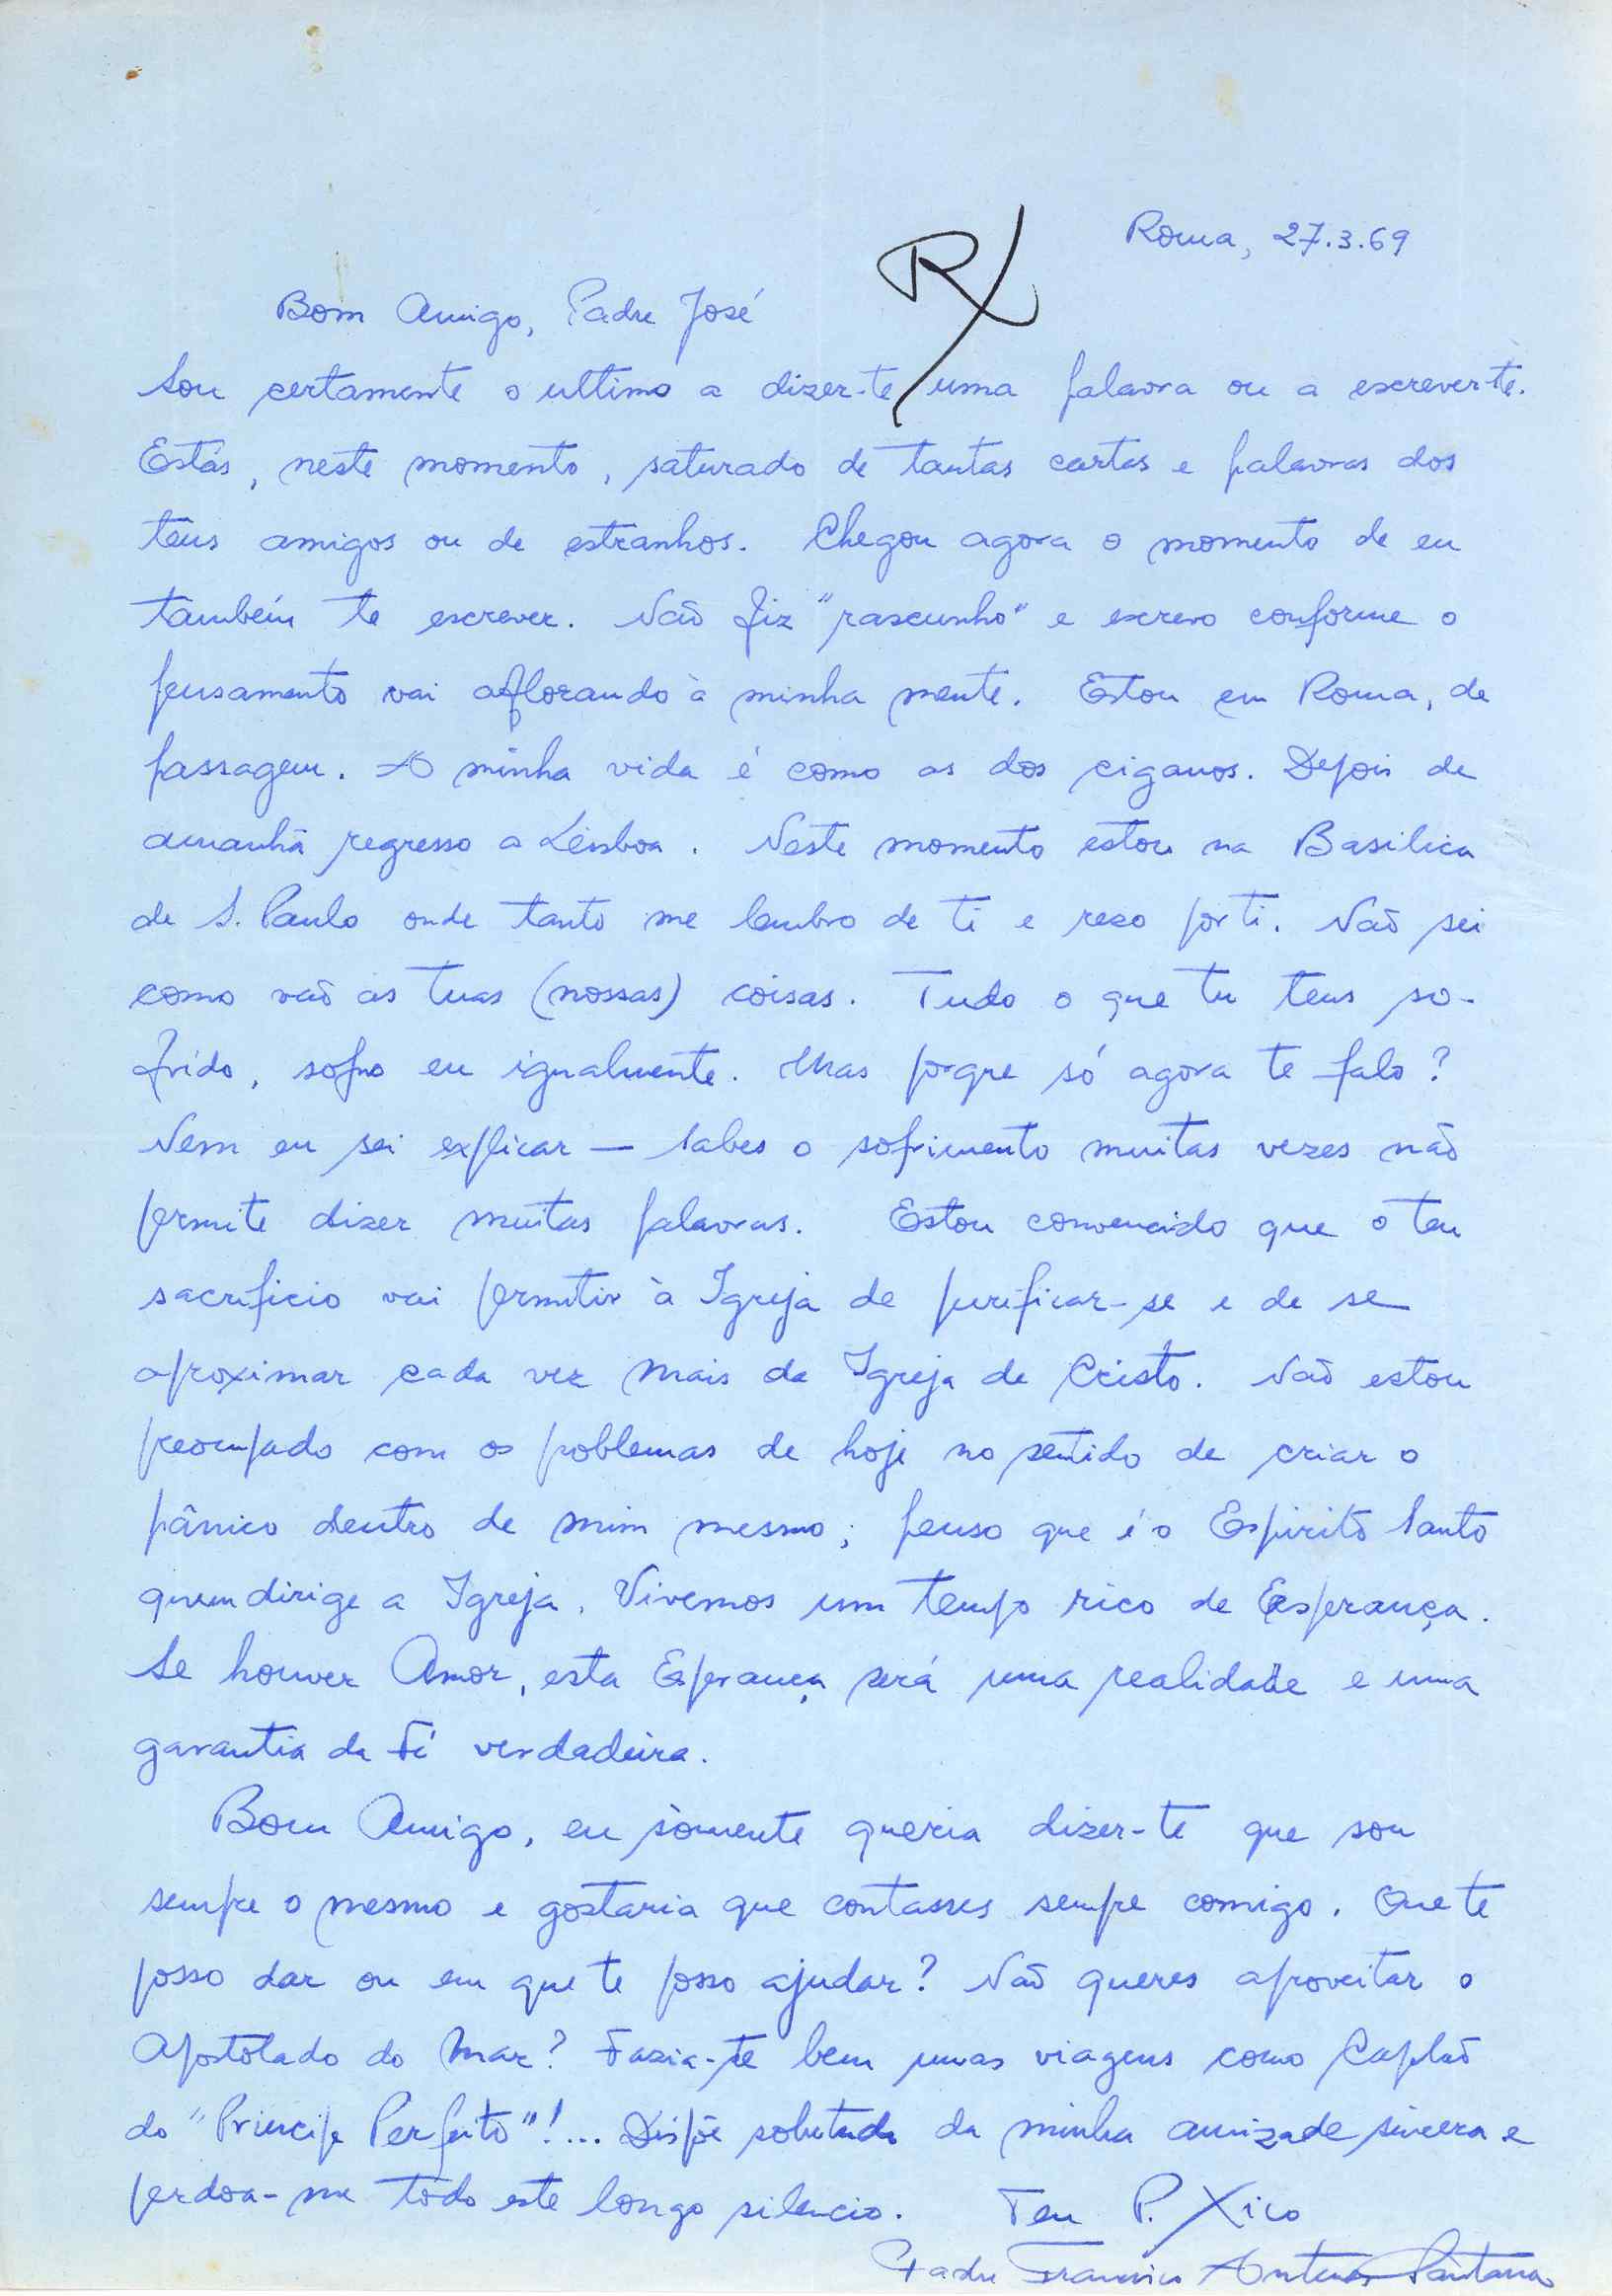 Roma, 27.3.69
R
Bom Amigo, Padre José
Sou certamente o ultimo a dizer-te uma palavra ou a escrever-te.
Estás, neste momento, saturado de tantas cartas e palavras dos
teus amigos ou de estranhos. Chegou agora o momento de eu
também te escrever. Não fiz "rascunho" e escrevo conforme o
pensamento vai aflorando à minha mente. Estou em Roma, de
passagem. A minha vida é como as dos ciganos. Depois de
amanhã regresso a Lisboa. Neste momento estou na Basilica
de S. Paulo onde tanto me lembro de ti e rezo por ti. Não sei
como vão as tuas (nossas) coisas. Tudo o que tu tens so-
frido, sofro eu igualmente. Mas porque só agora te falo?
Nem eu sei explicar — Sabes o sofrimento muitas vezes não
permite dizer muitas palavras. Estou convencido que o teu
sacrificio vai permitir à Igreja de purificar-se e de se
aproximar cada vez mais da Igreja de Cristo. Não estou
preocupado com os problemas de hoje no sentido de criar o
pânico dentro de mim mesmo; penso que é o Espirito Santo
quem dirige a Igreja. Vivemos um tempo rico de Esperança.
Se houver Amor, esta Esperança será uma realidade e uma
garantia da Fé verdadeira.
Bom Amigo, eu sòmente queria dizer-te que sou
sempre o mesmo e gostaria que contasses sempre comigo. Que te
posso dar ou em que te posso ajudar? Não queres aproveitar o
Apostolado do Mar? Fazia-te bem umas viagens como Capelão
do "Principe Perfeito"!... Dispõe sobretudo da minha amizade sincera e
perdoa-me todo este longo silencio. Teu P. Xico
Padre Francisco Antunes Santana